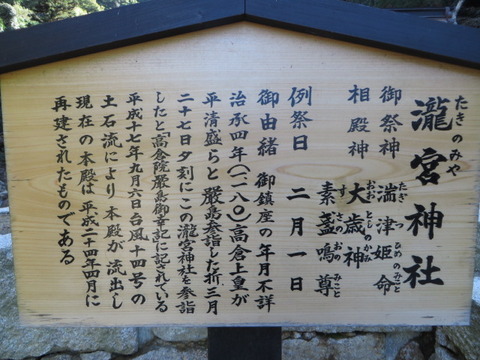 たきのみや
瀧宮神社
御祭神 湍津姫命
たぎつひめのみこと
相殿神 大歳神
おおとしのかみ
素盞鳴尊
すさのおのみこと
例祭日 二月一日
御由緒 御鎮座の年月不詳
治承四年(一一八〇)高倉上皇が
平清盛らと厳島参詣した折、三月
二十七日夕刻にこの瀧宮神社を参詣
したと「高倉院厳島御幸記」に記されている
平成十七年九月六日台風十四号の
土石流により本殿が流出し
現在の本殿は平成二十四年四月に
再建されたものである